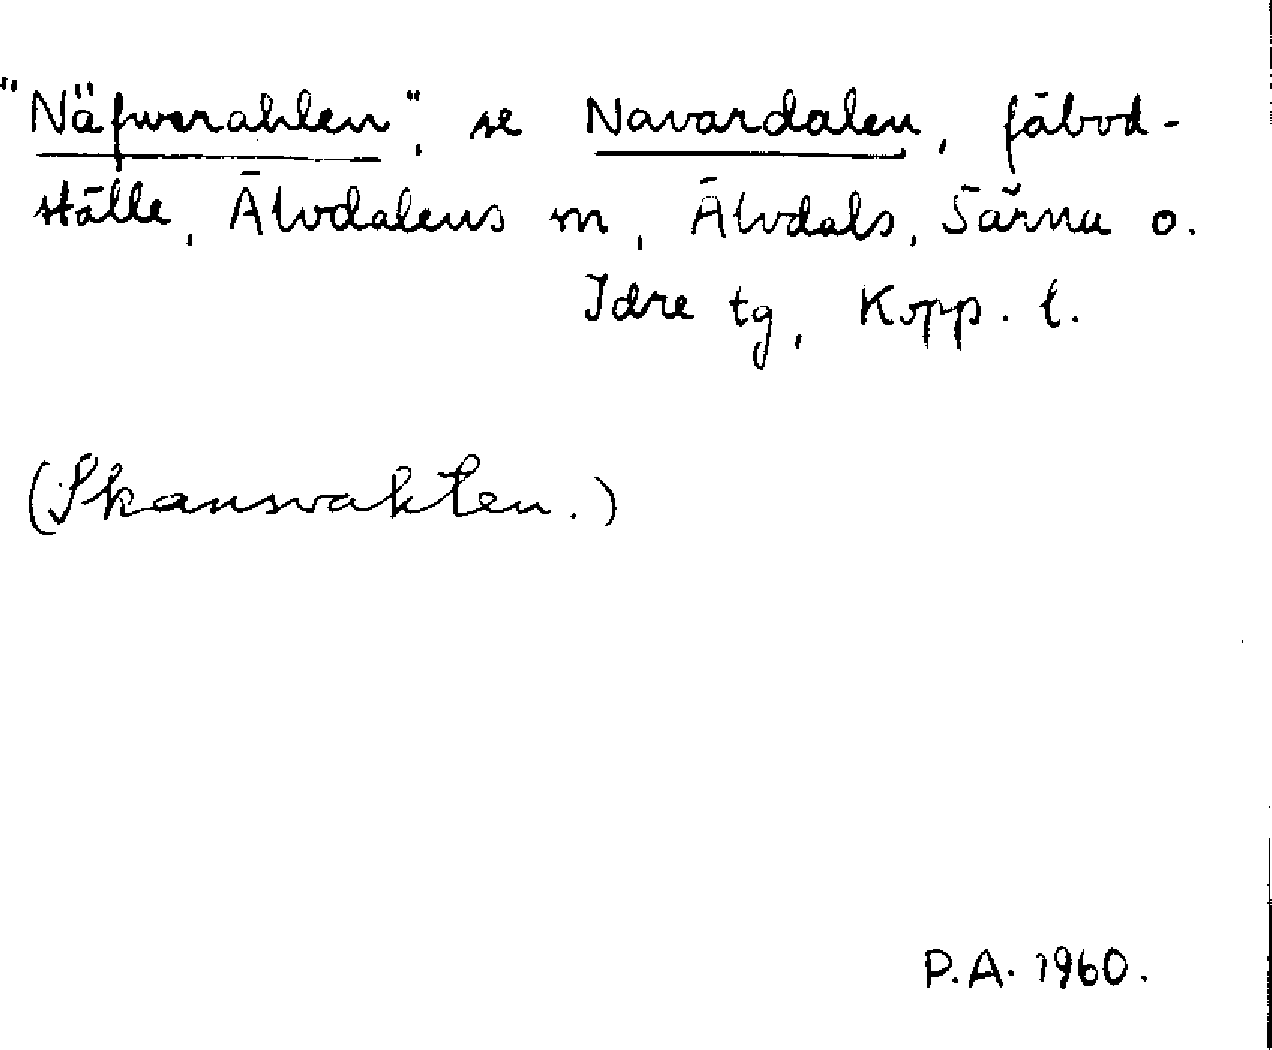 "Näfwerahlen", se Navardalen, fäbod-
ställe, Älvdalens sn, Älvdals, Särna o.
Idre tg, Kopp. l.
(Skansvakten.)
P.A. 1960.